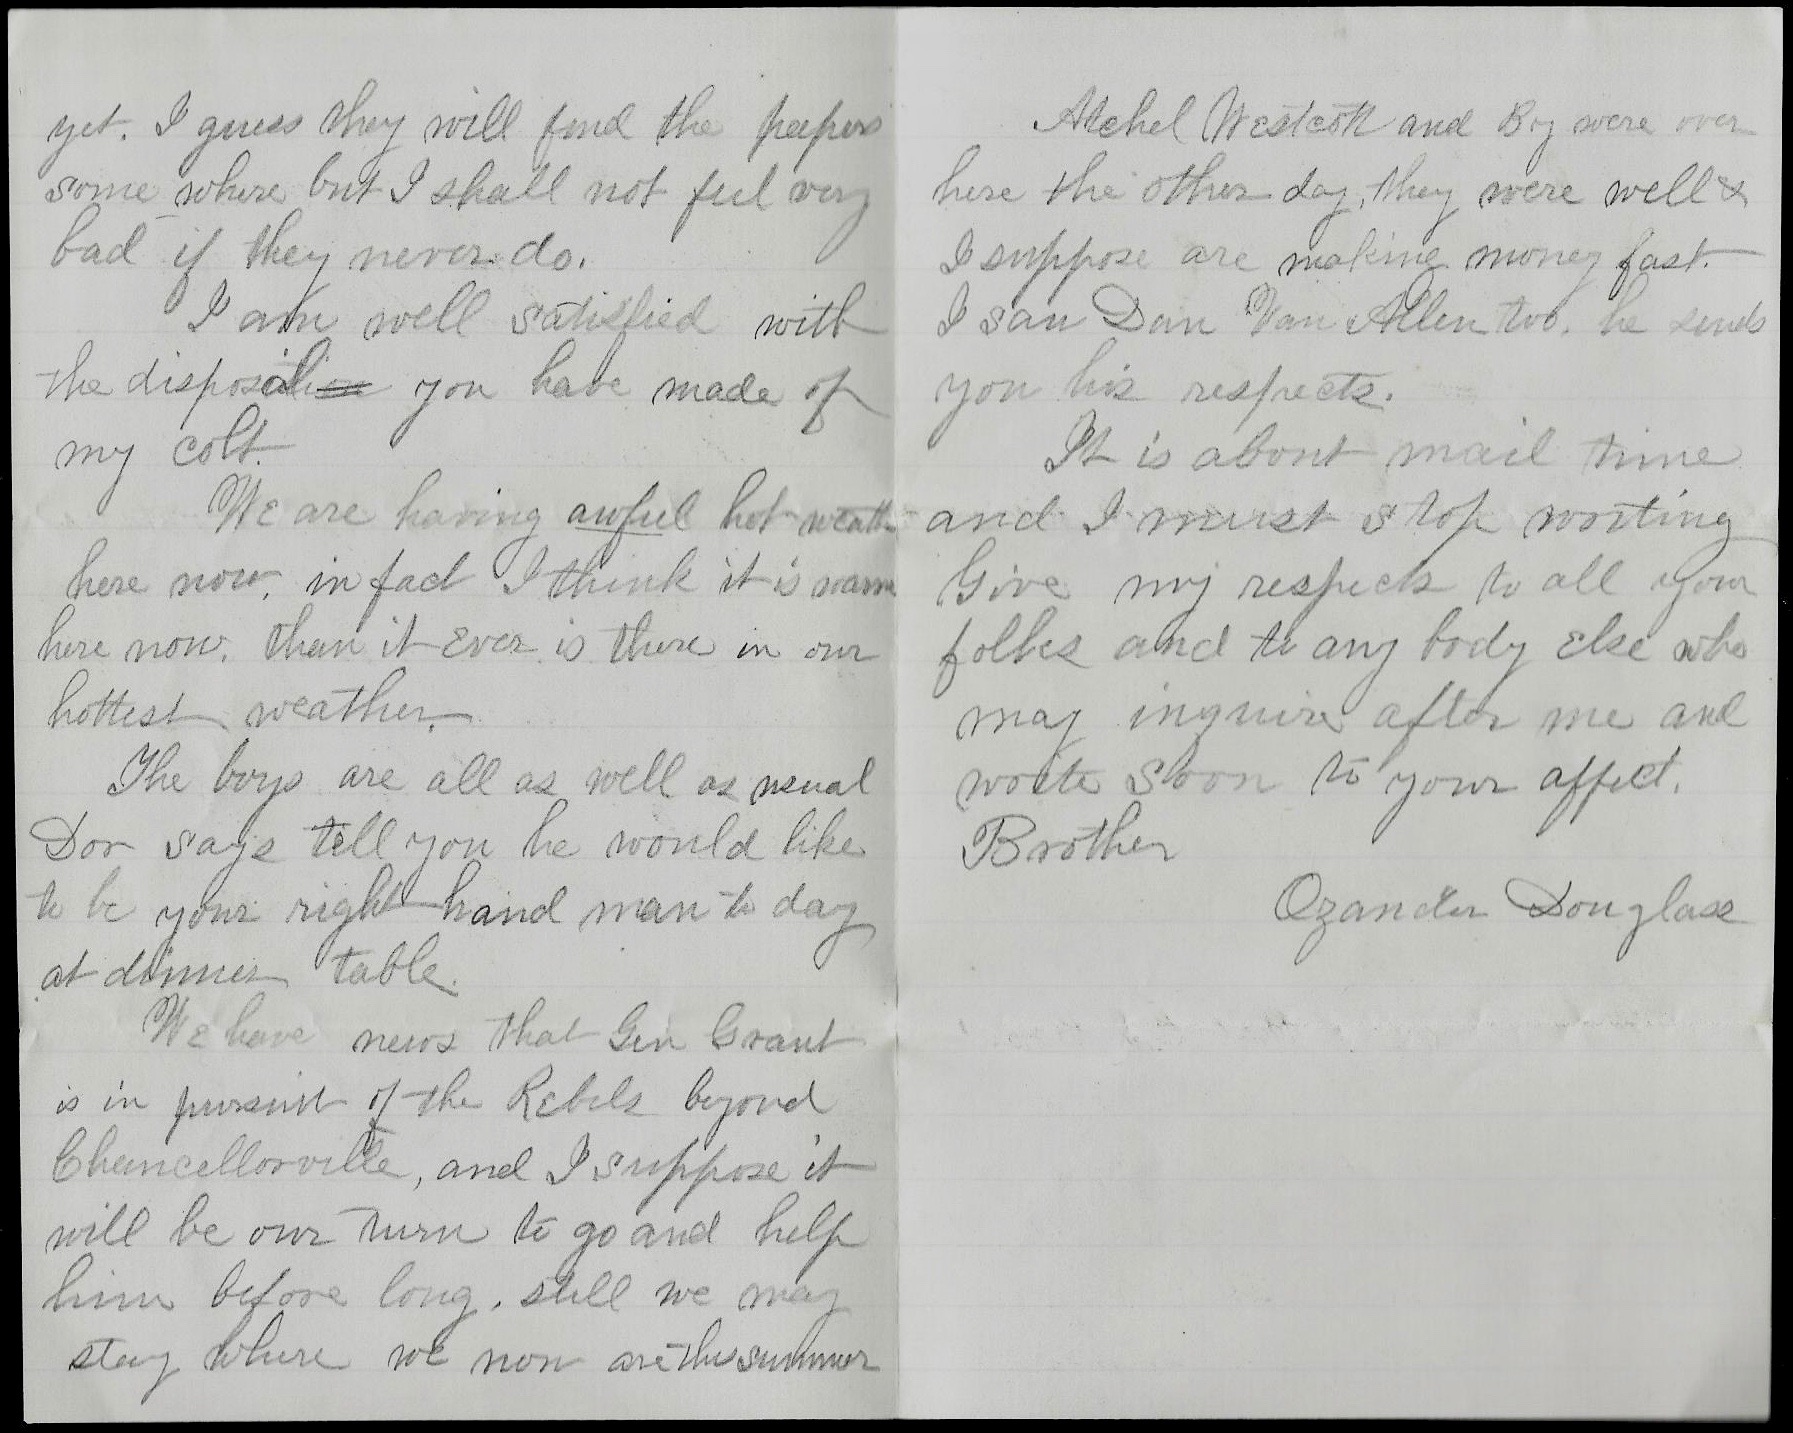 yet. I guess they will find the papers
some where but I shall not feel very
bad if they never do.
I am well satisfied with
the disposal you have made of
my colt.
We are having awful hot weath
here now, in fact I think it is warm
here now, than it Ever is there in our
hottest weather.
The boys are all as well as usual
Dor says tell you he would like
to be your right hand man to day
at dinner table.
We have news that Gen Grant
is in pursuit of the Rebels beyond
Chancellorville, and I suppose it
will be our turn to go and help
him before long. still we may
stay where we now are this summer
Westcott and Boy were over
here the other day, they were well &
I suppose are making money fast.
I saw Dan Van Allen too. he sends
you his respects.
It is about mail time
and I must stop writing
Give my respects to all your
folkes and to any body Else who
may inquire after me and
write soon to your affect.
Brother
Ozander Douglass